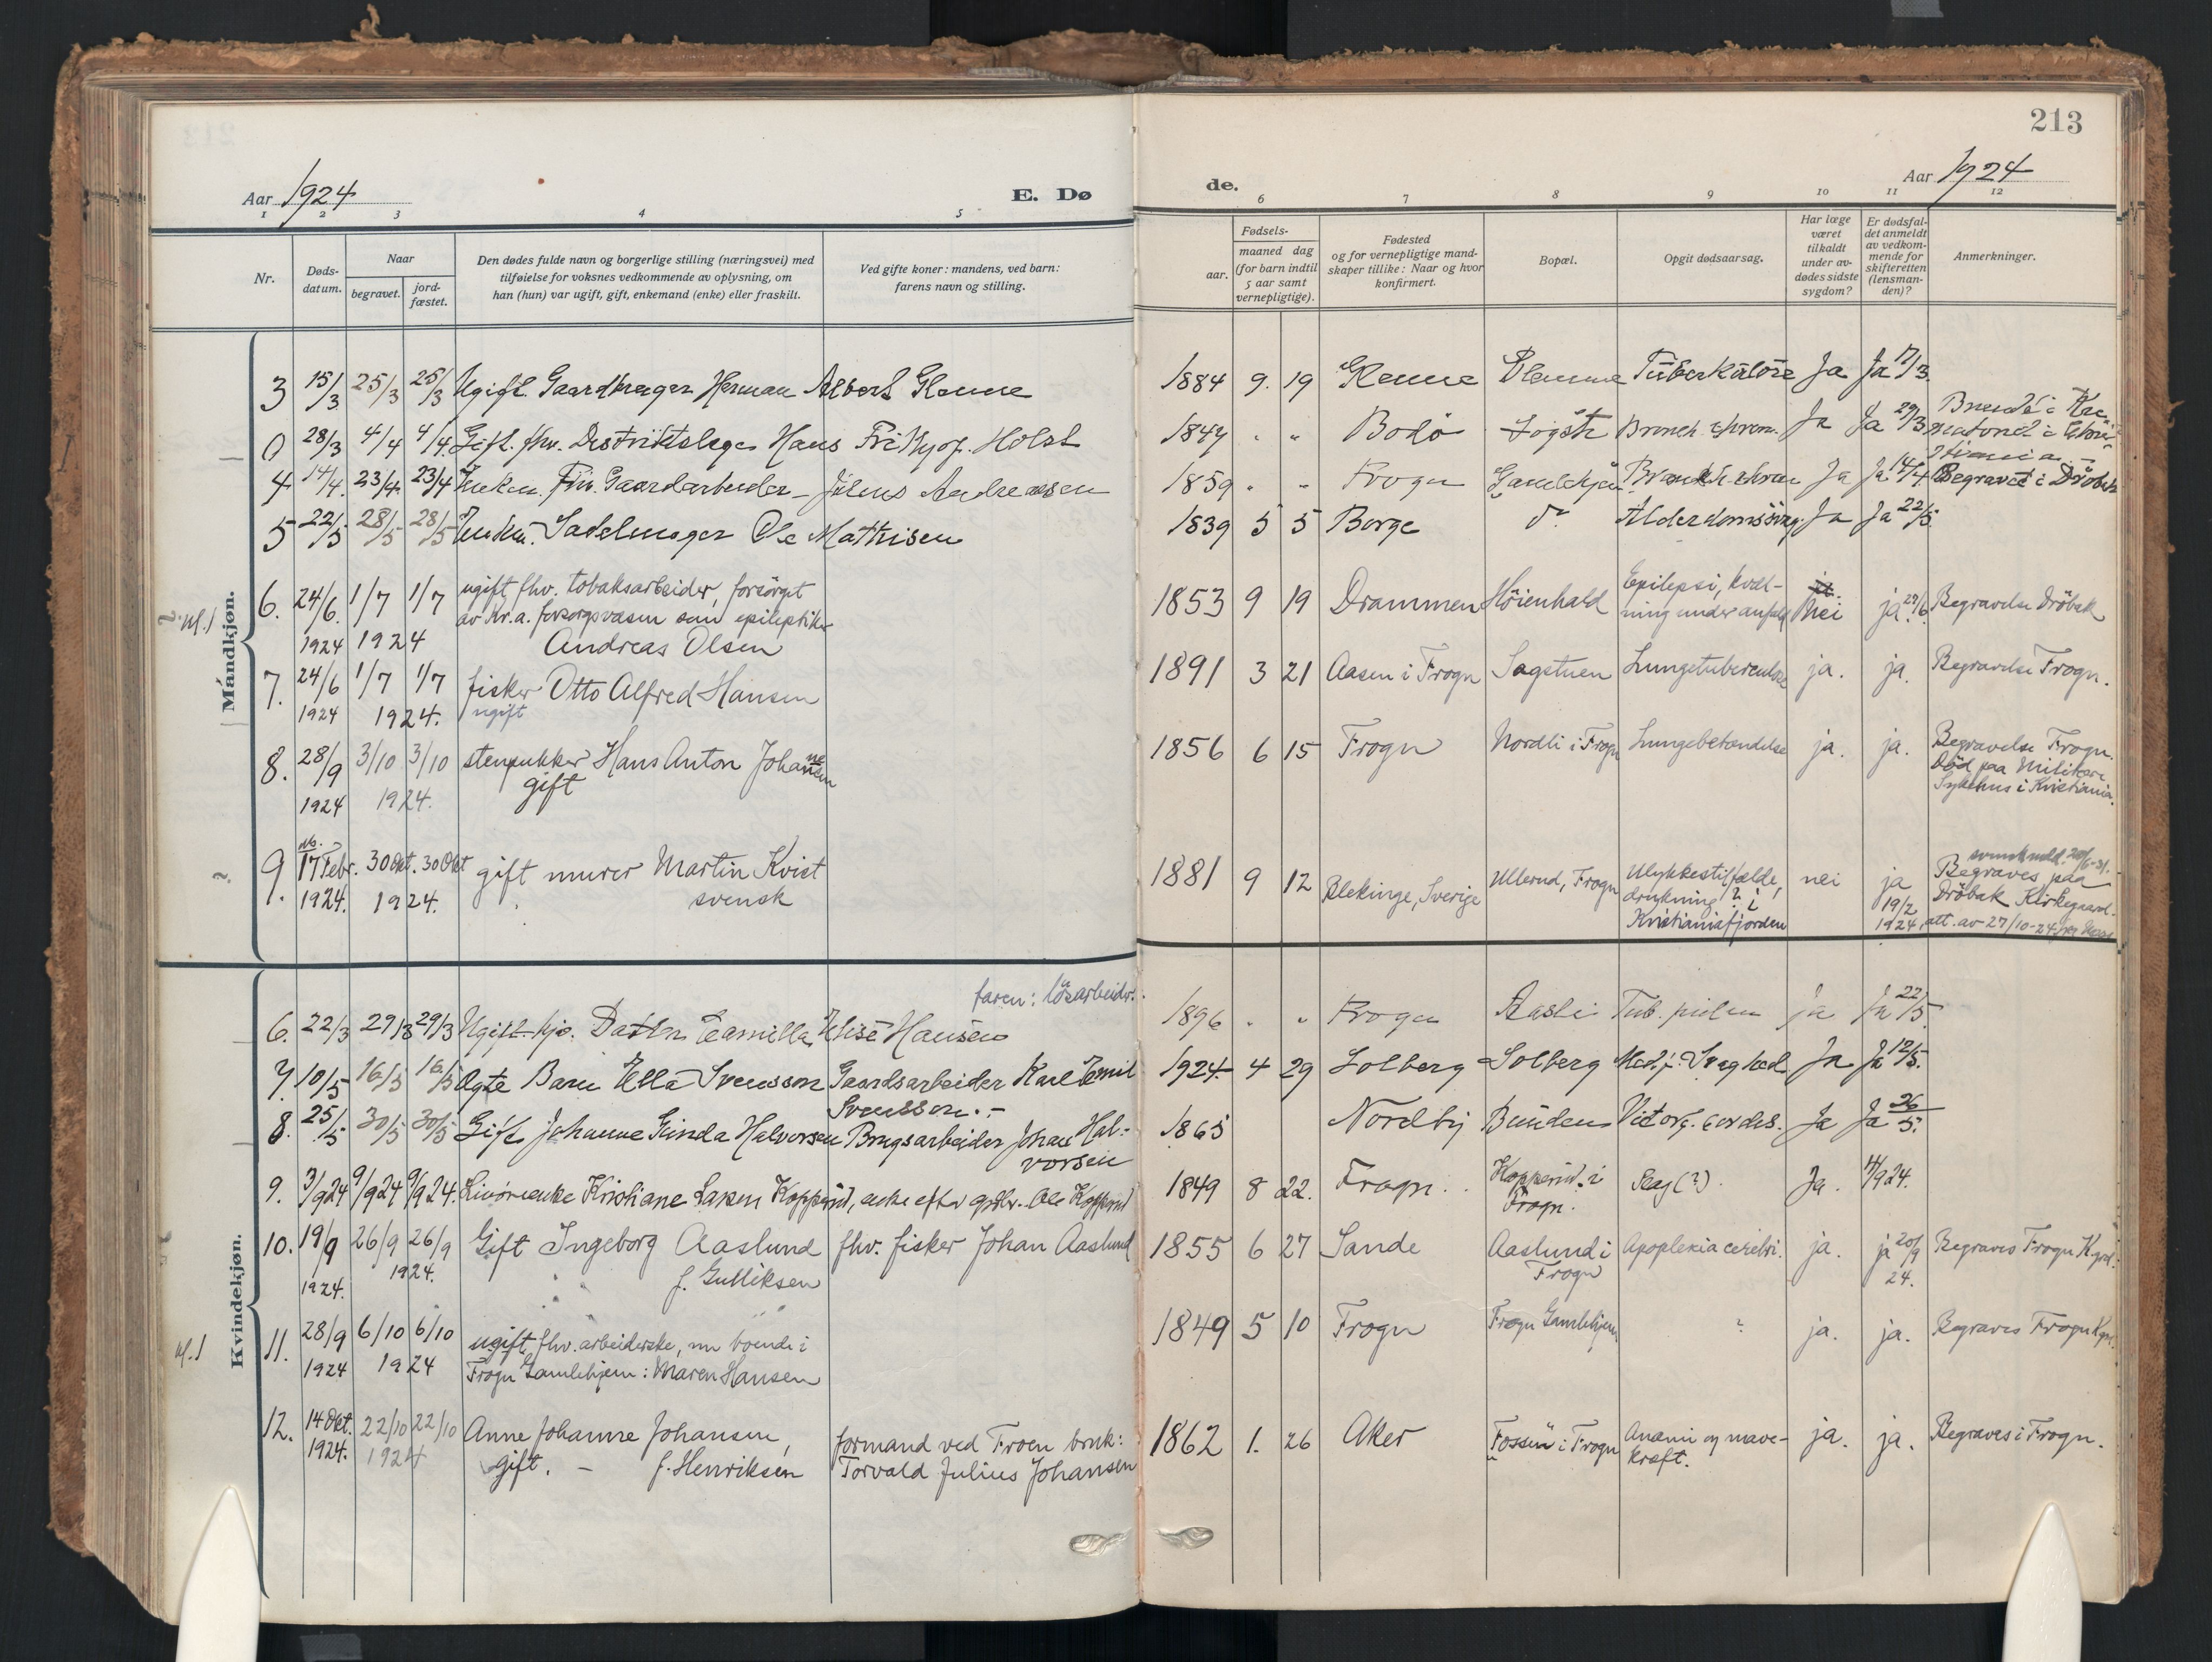 213
Aar 1924
E. Dø
de.
Aar 1924
1 2 3 4 5 6 7 8 9 10 11 12
Nr.
Døds-
datum.
Naar
begravet.
jord-
fæstet.
Den dødes fulde navn og borgerlige stilling (næringsvei) med
tilføielse for voksnes vedkommende av oplysning, om
han (hun) var ugift, gift, enkemand (enke) eller fraskilt.
Ved gifte koner: mandens, ved barn:
farens navn og stilling.
Fødsels-
aar.
maaned dag
(for barn indtil
5 aar samt
vernepligtige).
Fødested
og for vernepligtige mand-
skaper tillike: Naar og hvor
konfirmert.
Bopæl.
Opgit dødsaarsag.
Har læge
været
tilkaldt
under av-
dødes sidste
sygdom?
Er dødsfal-
det anmeldt
av vedkom-
mende for
skifteretten
(lensman-
den)?
Anmerkninger.
Mandkjøn.
3 15/3 25/3 25/3 Ugift. Gaardbruger Herman Albert Glenne 1884 9. 19 Glenne Glenne Tüberkülose Ja Ja 17/3
0 28/3 4/4 4/4. Gift. fhv. Distriktslæge Hans Fritjof Holst 1847 " " Bodö Bronch. chron. Ja Ja 29/3
Brendt i Kre-
matoriet i Chri-
stiania.
4 14/4. 23/4 23/4 Fhv. Gaardarbeider Julius Andreassen 1859 " " Frogn Gamlehjem Bronch. chron. Ja Ja 14/4 Begravet i Dröbak
5 22/5 28/5 28/5 Enkem. Sadelmager Ole Mathisen 1839 5 5 Borge do. Alderdomssvag. Ja Ja 22/5
6. 24/6. 1924 1/7 1/7 1924 ugift fhv. tobaksarbeider, forsörget
av Kr.a. forsorgsvæsen som epileptiker
Andreas Olsen
1853 9 19 Drammen Höienhald Epilepsi, kvæl-
ning under anfald nei ja. Begravelse Dröbak
7. 24/6 1924 1/7 1/7 1924. fisker Otto Alfred Hansen
ugift
1891 3 21 Aasen i Frogn Sagstuen Lungetuberculose ja. ja. Begravelse Frogn.
8. 28/9 1924 3/10 3/10 1924. stenpukker Hans Anton Johannesen
gift
1856 6 15 Frogn Nordli i Frogn Lungebetændelse ja. ja. Begravelse Frogn.
Död paa Militære
Sykehus i Kristiania.
9. 17 Febr. 1924. 30 Okt. 30 Okt 1924. gift murer Martin Kvist
svensk
1881 9 12 Blekinge, Sverige Ullerud, Frogn Ulykkestilfælde,
drukning? i
Kristianiafjorden
nei ja 19/2 1924.
Begraves paa
Dröbak Kirkegaard.
att. av 27/10-24
Kvindekjøn.
faren: lösarbeider.
6. 22/3 29/3 29/3 Ugift. Datter Camilla Elise Hansen 1896 " " Frogn Aasli Tub. pulm Ja Ja 22/5.
7. 10/5 16/5 16/5 Ægte Barn Ella Svensson Gaardsarbeider Karl Emil
Svensson.
1924. 4 29 Solberg Solberg Medf. Svaghed Ja Ja 12/5.
8. 25/5 30/5 30/5 Gift Johanne Ginda Halvorsen Brugsarbeider Johan Hal-
vorsen
1865 Nordby Bunden Vit. org. cordis. Ja Ja 26/5.
9. 3/9 24 9/9 24 9/9 24. Kristiane Larsen Kopperud, enke efter Ole Kopperud 1849 8 22. Frogn. Kopperud i
Frogn.
Slag (?). Ja. 4/9 24.
10. 19/9 1924. 26/9 26/9 1924. Gift Ingeborg Aaslund fhv. fisker Johan Aaslund
f. Gulliksen
1855 6 27 Sande Aaslund i
Frogn
Apoplexia cerebri. ja. ja 20/9 24. Begraves Frogn K.grd.
11. 28/9 1924 6/10 6/10 1924 ugift fhv. arbeiderske, nu boende i
Frogn Gamlehjem: Maren Hansen
1849 5 10 Frogn Frogn Gamlehjem ? ja. ja. Begraves Frogn Kgrd.
12. 14 Okt. 1924. 22/10 22/10 1924 Anne Johanne Johansen,
gift. - f. Henriksen
formand ved Froen bruk:
Torvald Julius Johansen
1862 1. 26 Aker Fossum i Frogn Anæmi og mave-
kræft.
ja. ja. Begraves i Frogn.